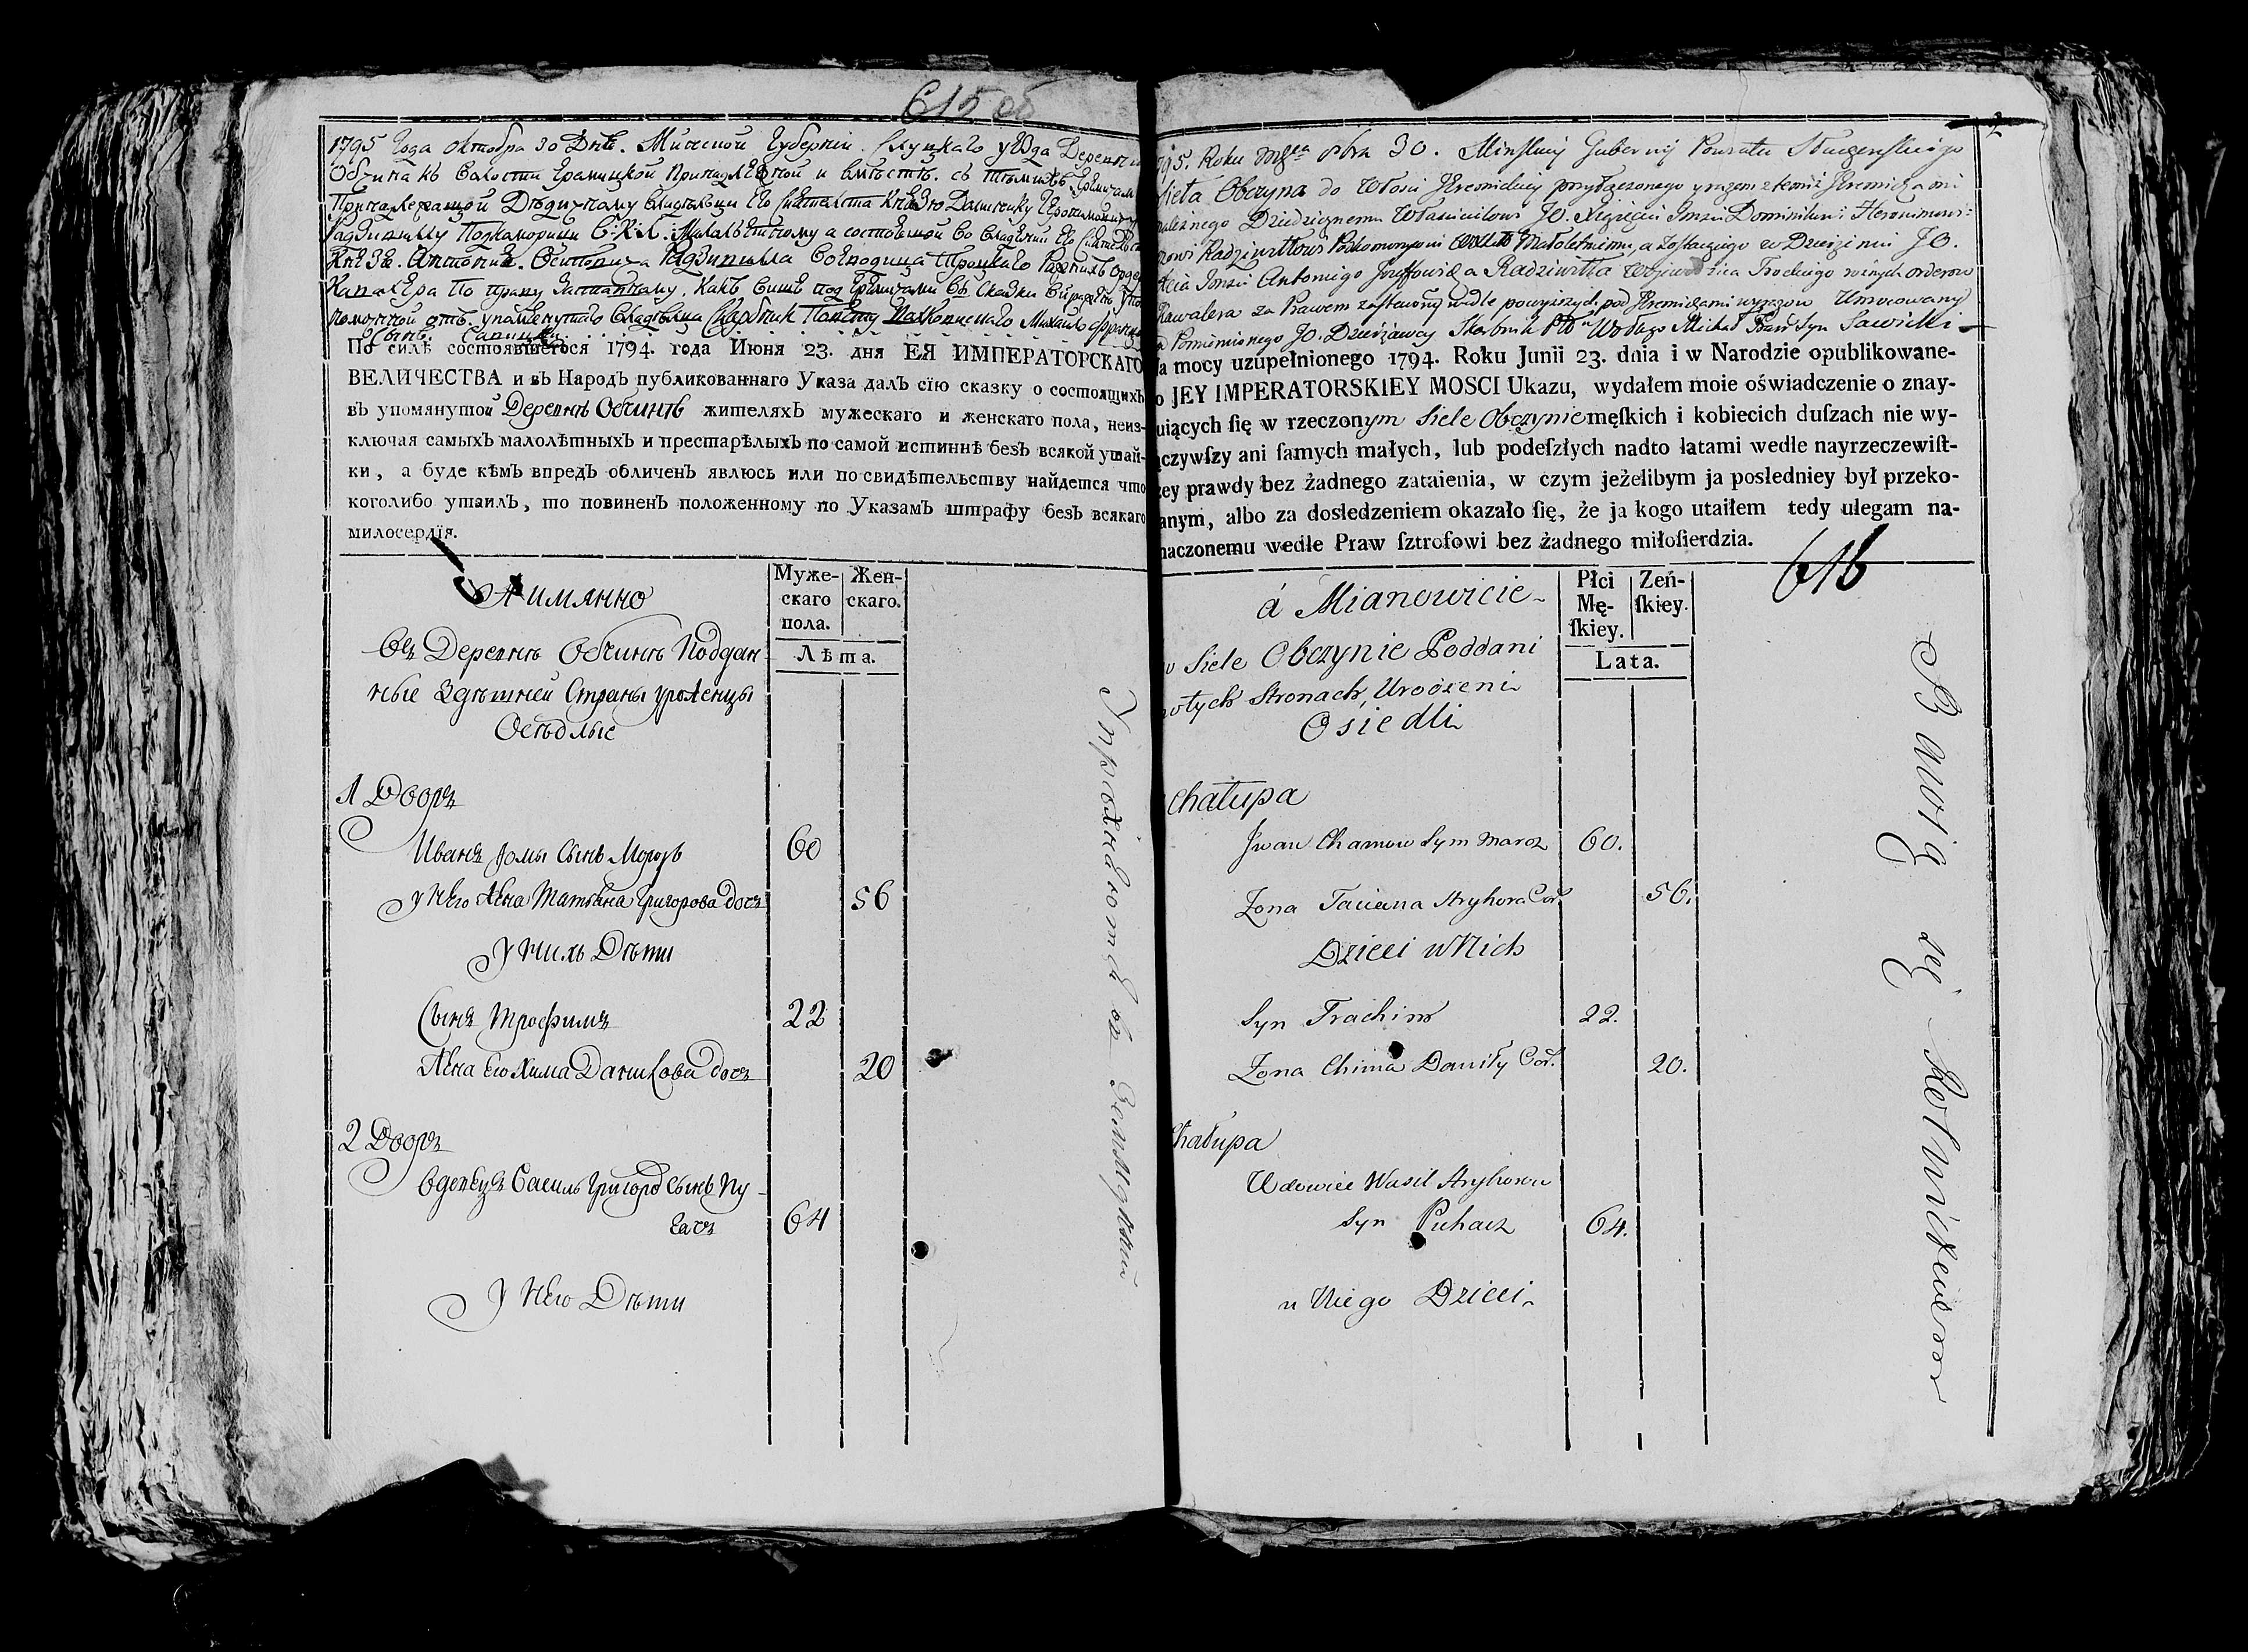 615 об
1795 Года Октобра 30 Дня. Минской Губернии. Слуцкаго уезда Деревни
Обчина къ Волости Грамицкой принадлежной и вместе. съ
Принадлежащой Дедичному Владельцы Его Сиятелста Князю Доминику Иеронимовичу
Радзивиллу Подкоморыему В. К. Л. Малалетному а состоящой во владении Его
Князе. Антония. Радзивилла Воеводица Троцкаго
Кавалера По праву Заставному. Какъ Више под
отъ. упомянутаго Владельца Михаилъ
Сынъ. Савицки
По силѣ состоявшегося 1794. года Июня 23. дня ЕЯ ИМПЕРАТОРСКАГО
ВЕЛИЧЕСТВА и въ Народъ публикованнаго Указа далъ сїю сказку о состоящихъ
въ упомянутой Деревнѣ Обчинѣ жителяхъ мужескаго и женскаго пола, неиз-
ключая самыхъ малолѣтныхъ и престарѣлыхъ по самой истиннѣ безъ всякой утай-
ки, а буде кѣмъ впредъ обличенъ явлюсь или по свидѣтельству найдется что
коголибо утаилъ, то повиненъ положенному по Указамъ штрафу безъ всякаго
милосердїя.
А имянно
Муже-
скаго
пола.
Жен-
скаго.
Лѣта.
Въ Деревнѣ Обчинѣ Поддан
ные Здѣшней Страны уроженцы
Оседлые
1 Дворъ
Иванъ Хомы Сынъ Морозъ 60
у Него Жена Татьяна Григорова дочь 56
У Нихъ Дѣти
Сынъ Трофимъ 22
Жена Его Хима Данилова дочь 20
2 Дворъ
Вдовецъ Василь Григоро Сынъ Пу-
гачъ 64
У Него Дѣти
Упражняются въ Земледелии
2
795. Roku 8bra 30. Minskiey Gubernij Powiatu Słuczenskiego
Obczyna do Włości przyłączonego y razem z temiż
Dziedzicznemu Właścicielowi JO. Xigżęciu Jmści Dominikowi Heronimowi
Radziwiłłowi Podkomorzemu Małoletniemu, a zostaiącego w Dzierżeniu JO.
Jmści Antoniego Radziwiłła Woiewodzica Trockiego rożnych orderow
Kawalera za Prawem zastawnym wedle powyższych pod wyrazow Umocowany
Pomienionego JO. Dzierżawcy Michał Syn Sawicki
a mocy uzupełnionego 1794. Roku Junii 23. dnia i w Narodzie opublikowane-
o JEY IMPERATORSKIEY MOSCI Ukazu, wydałem moie oświadczenie o znay-
uiących ſię w rzeczonym Siele Obczynie męſkich i kobiecich duſzach nie wy-
ączywſzy ani ſamych małych, lub podeſzłych nadto latami wedle nayrzeczewiſt-
zey prawdy bez żadnego zataienia, w czym jeżelibym ja posledniey był przeko-
anym, albo za dosledzeniem okazało ſię, że ja kogo utaiłem tedy ulegam na-
naczonemu wedle Praw ſztrofowi bez żadnego miłoſierdzia.
616
á Mianowicie
Płci
Mę-
ſkiey.
Zeń-
ſkiey.
Lata.
w Siele Obczynie Poddani
wtych Stronach Urodzeni
Osiedli
Chałupa
Jwan Chamow Syn Maroz 60.
Zona Taciana Hryhora Cor. 56.
Dzieci u Nich
Syn Trachim 22.
Zona Chima Daniły Cor. 20.
Chałupa
Wdowiec Wasil Hryhorow
Syn Puhacz 64.
u Niego Dzieci
Bawią się Rolnictwem